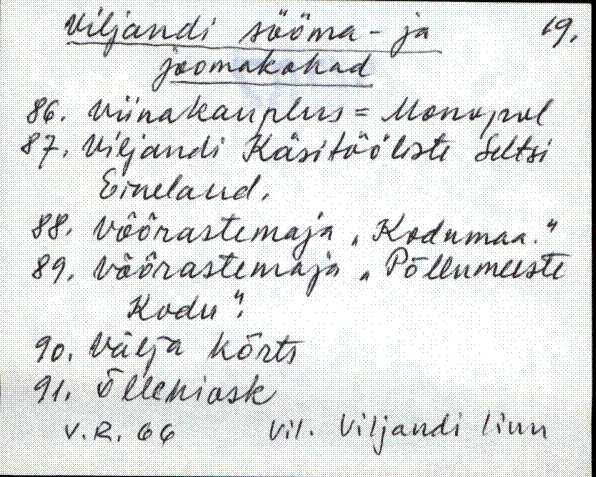 Viljandi sööma- ja 19.
joomakohad
86. Viinakauplus = Monopol
87. Viljandi Käsitööliste Seltsi
Eineland.
88. Võõrastemaja „Kodumaa."
89. Võõrastemaja „Põllumeeste
Kodu".
90. Välja kõrts
91. Õllekiosk
V.R. 66 Vil. Viljandi linn